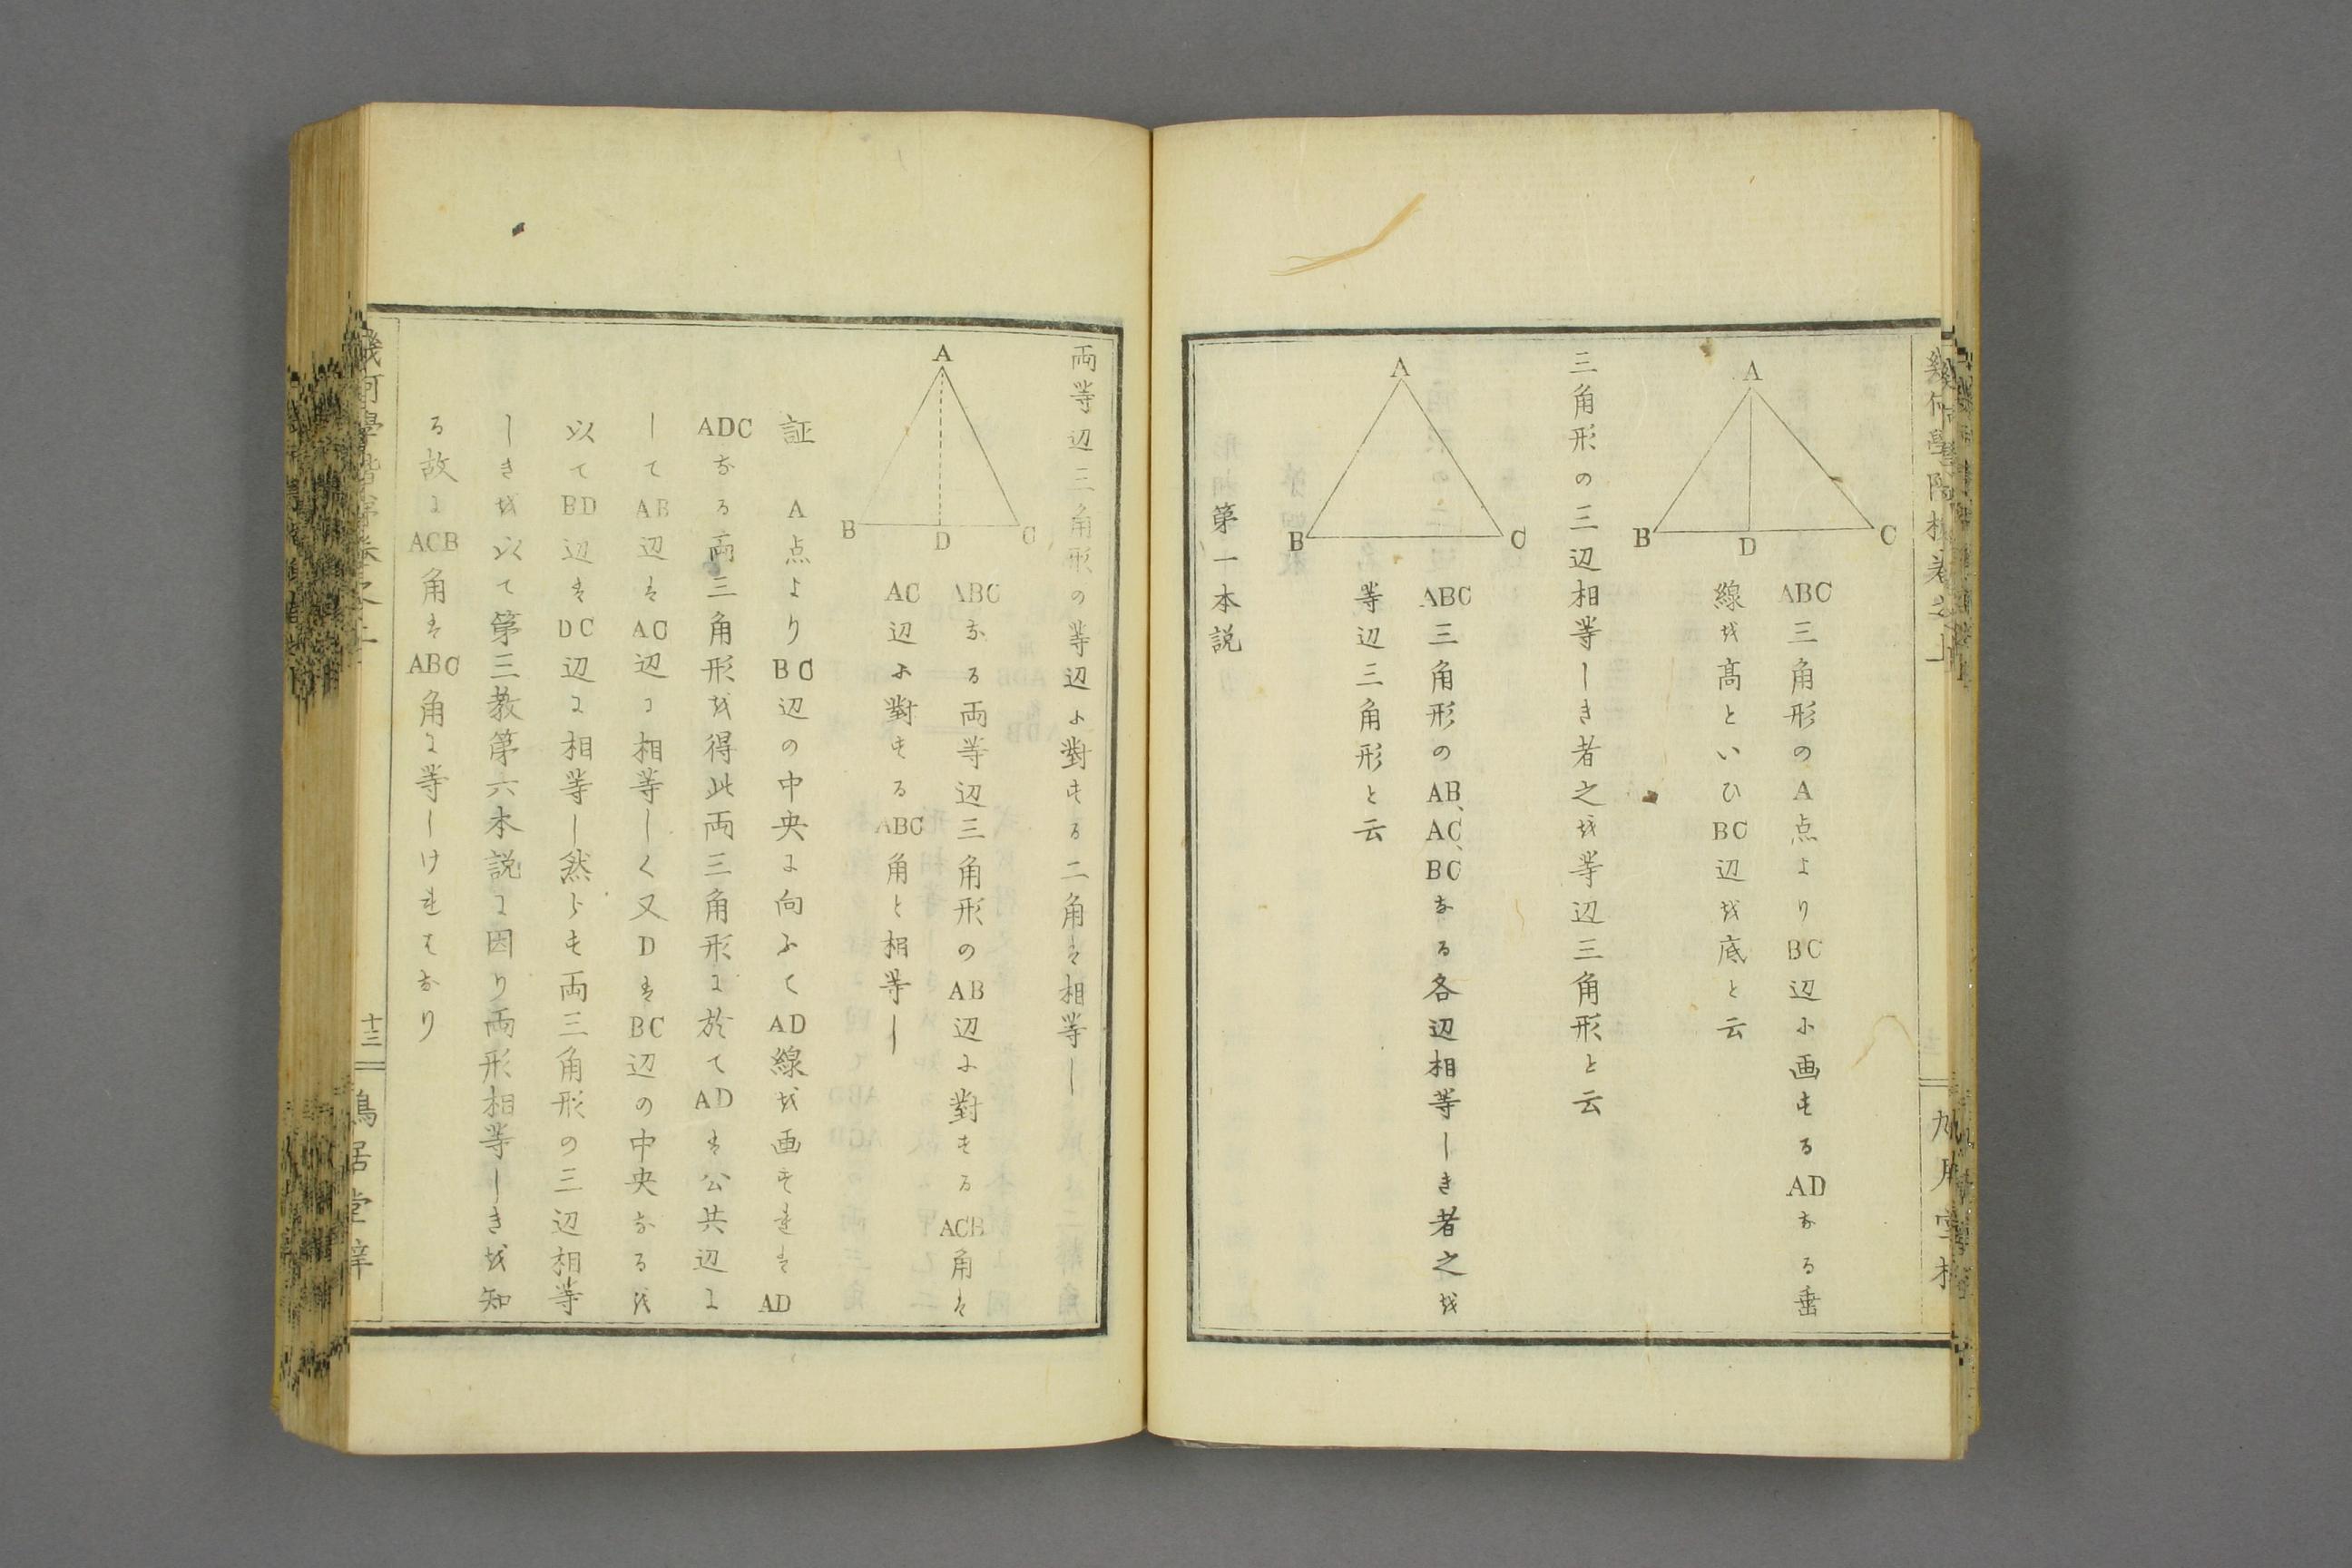 A
B
D
C
ABC三角形のA点よりBC辺に画するADなる垂
線を高といひBC辺を底と云
三角形の三辺相等しき者之を等辺三角形と云
A
B
C
ABC三角形のAB、AC、BCなる各辺相等しき者之を
等辺三角形と云
第一本説
両等辺三角形の等辺に對する二角は相等し
A
B
D
C
ABCなる両等辺三角形のAB辺に對するACB角は
AC辺に對するABC角と相等し
証 A点よりBC辺の中央に向ふてAD線を画すればAD
ADCなる両三角形を得此両三角形に於てADは公共辺に
してAB辺はAC辺に相等しく又DはBC辺の中央なるを
以てBD辺はDC辺に相等し然らも両三角形の三辺相等
しきを以て第三教第六本説に因り両形相等しきを知
る故にACB角はABC角に等しければなり
十三